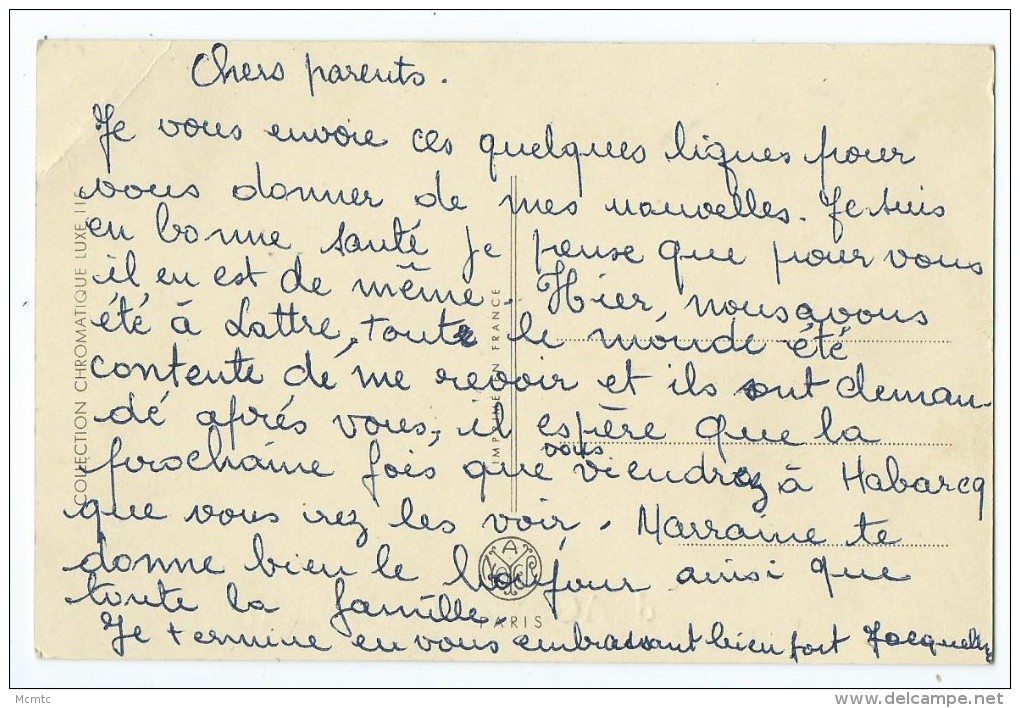 Chers parents.
Je vous envoie ces quelques lignes pour
vous donner de mes nouvelles. Je suis
en bonne santé je pense que pour vous
il en est de même. Hier, nous avons
été à Lattre, toute le monde été
contente de me revoir et ils ont deman
dé après vous, il espère que la
prochaine fois que vous viendrez à Habarcq
que vous irez les voir. Marraine te
donne bien le bonjour ainsi que
toute la famille.
Je termine en vous embrassant bien fort Jacqueline
COLLECTION CHROMATIQUE LUXE 116
IMPRIMÉ EN FRANCE
PARIS
Mcmtc
www.delcampe.net